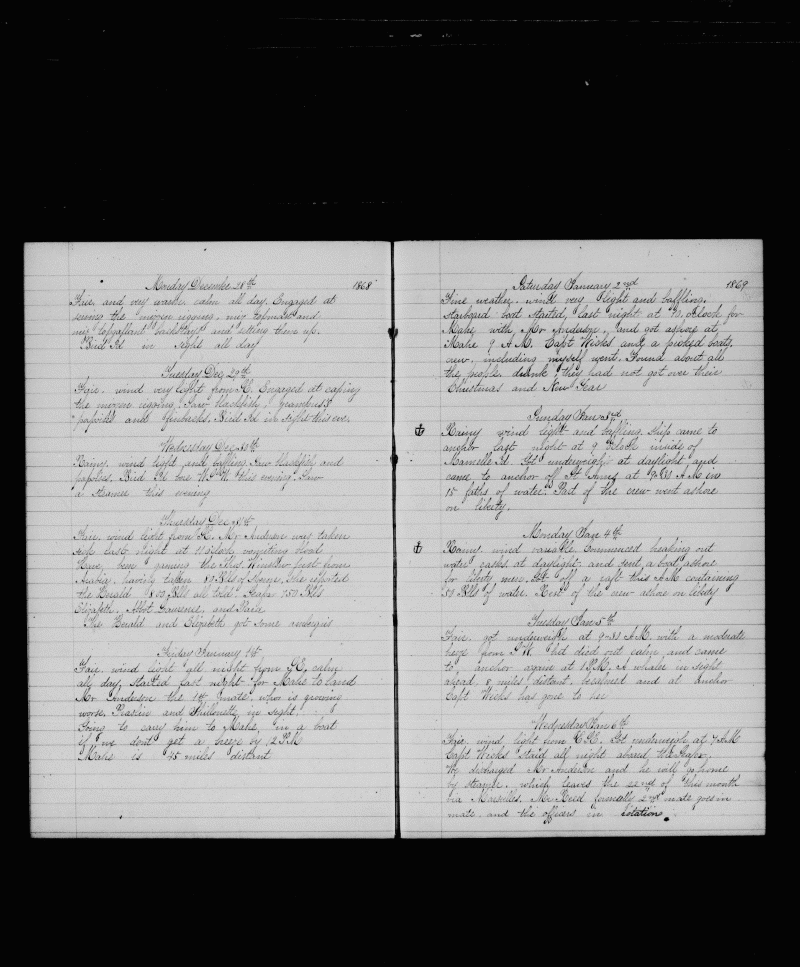 Monday December 28th 1868
Fair, and very warm, calm all day. Engaged at
the mizzen rigging, miz topmast and
miz topgallant backstays and setting them up.
Bird Id in sight all day
Tuesday Dec 29th
Fair, wind very light from Engaged at
the mizzen rigging. Saw blackfish, grampuses
porpoises and finbacks. Bird Id in sight this eve.
Wednesday Dec 30th
Rainy, wind light and baffling. Saw blackfish and
porpoises. Bird Id bore W.S.W. this evening. Saw
a steamer this evening
Thursday Dec 31st
Fair, wind light from Mr Anderson was taken
sick last night at 11 oclock, vomiting blood.
Have been gaming the Winslow just from
Arabia, having taken 80 Bbls of Sperm. She reported
the Herald 800 Bbls all told. Gazelle 750 Bbls
Elizabeth, Abbot Lawrence, and
The Herald and Elizabeth got some ambergris
Friday January 1st
Fair, wind light all night from S.E., calm
all day. Started last night for Mahe to land
Mr Anderson the 1st mate, who is growing
worse. Praslin and Silhouette in sight.
Going to carry him to Mahe, in a boat
if we don't get a breeze by 12 P.M
Mahe is 45 miles distant
Saturday January 2nd 1869
Fine weather, wind very light and baffling.
Starboard boat started, last night at 10 oclock for
Mahe with Mr Anderson, and got ashore at
Mahe 9 A.M. Capt Wicks and a picked boats
crew, including myself went. Found about all
the people drunk, they had not got over their
Christmas and New Year
Sunday Jan 3rd
Rainy wind light and baffling. Ship came to
anchor last night at 9 oclock inside of
Mamelle Id. Got underweigh at daylight and
came to anchor off St Anns at 9-30 A.M in
15 faths of water. Part of the crew went ashore
on liberty.
Monday Jan 4th
Rainy. wind variable. Commenced breaking out
water casks at daylight and sent a boat ashore
for liberty men. Got off a raft this A.M. containing
50 Bbls of water. Rest of the crew ashore on liberty
Tuesday Jan 5th
Fair, got underweigh at 9-30 A.M. with a moderate
breeze from N.W. but died out calm, and came
to anchor again at 1 P.M. A whaler in sight
ahead, 8 miles distant, becalmed and at anchor
Capt Wicks has gone to her
Wednesday Jan 6th
Fair, wind light from E.S.E. Got underweigh at 7 A.M
Capt Wicks staid all night aboard the Gazelle.
We discharged Mr Anderson and he will go home
by steamer, which leaves the 22nd of this month
via Marseilles. Mr Reed formerly 2nd mate goes in
mate, and the officers in rotation.